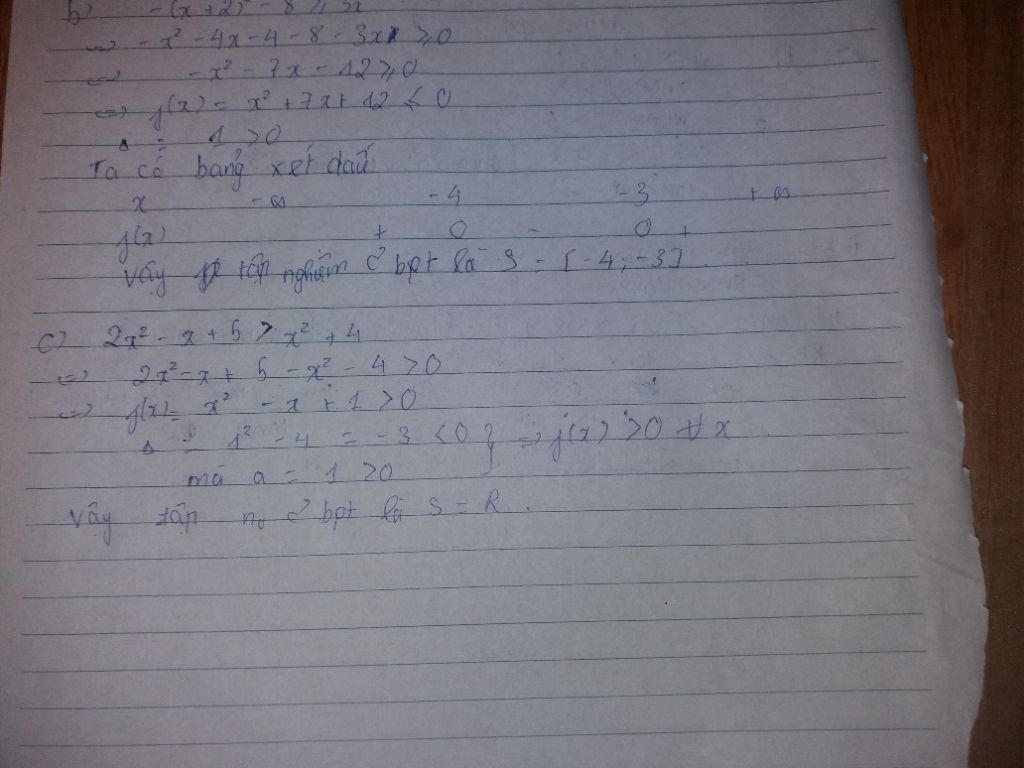 b) -(x+2)² - 8 ≥ 3x
⇔ -x² - 4x - 4 - 8 - 3x ≥ 0
⇔ -x² - 7x - 12 ≥ 0
⇔ f(x) = x² + 7x + 12 ≤ 0
Δ = 1 > 0
Ta có bảng xét dấu
x -∞ -4 -3 +∞
f(x) + 0 - 0 +
Vậy tập nghiệm củ bpt là S = [-4; -3]
c) 2x² - x + 5 > x² + 4
⇔ 2x² - x + 5 - x² - 4 > 0
⇔ f(x) = x² - x + 1 > 0
Δ = 1² - 4 = -3 < 0 } ⇒ f(x) > 0 ∀ x
mà a = 1 > 0
Vậy tập no bpt là S = R.